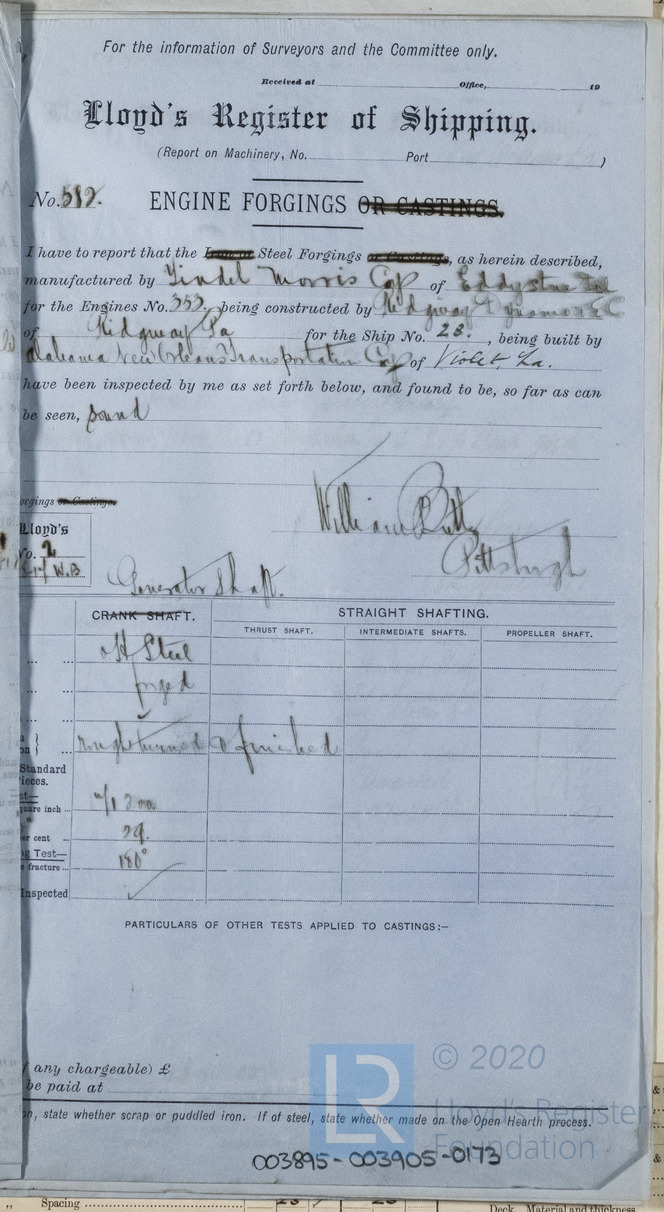 For the information of Surveyors and the Committee only.
Received at Office, 19
Lloyd's Register of Shipping.
(Report on Machinery, No. Port )
No. 512. ENGINE FORGINGS OR CASTINGS.
I have to report that the Steel Forgings or Castings, as herein described,
manufactured by Tindel Morris Cop of Eddystone
for the Engines No. 353. being constructed by Ridgway Dynamo & E C
of Ridgway Pa for the Ship No. 28. , being built by
Alabama New Orleans Transportation Cop of Violet, La.
have been inspected by me as set forth below, and found to be, so far as can
be seen, sound
orgings or Castings.
William Butt
Pittsburgh
Lloyd's
No. 2
W.B
Generator Shaft.
CRANK SHAFT. STRAIGHT SHAFTING.
THRUST SHAFT. INTERMEDIATE SHAFTS. PROPELLER SHAFT.
... ... OH Steel
... ... forged
... ...
on } ... rough turned & finished
Standard
ieces.
st—
quare inch ...
er cent ... 29.
g Test—
e fracture ... 180°
Inspected
PARTICULARS OF OTHER TESTS APPLIED TO CASTINGS:—
any chargeable) £
be paid at
on, state whether scrap or puddled iron. If of steel, state whether made on the Open Hearth process.
LR © 2020
Lloyd's Register
Foundation
003895-003905-0173
„ Spacing
Deck. Material and thickness